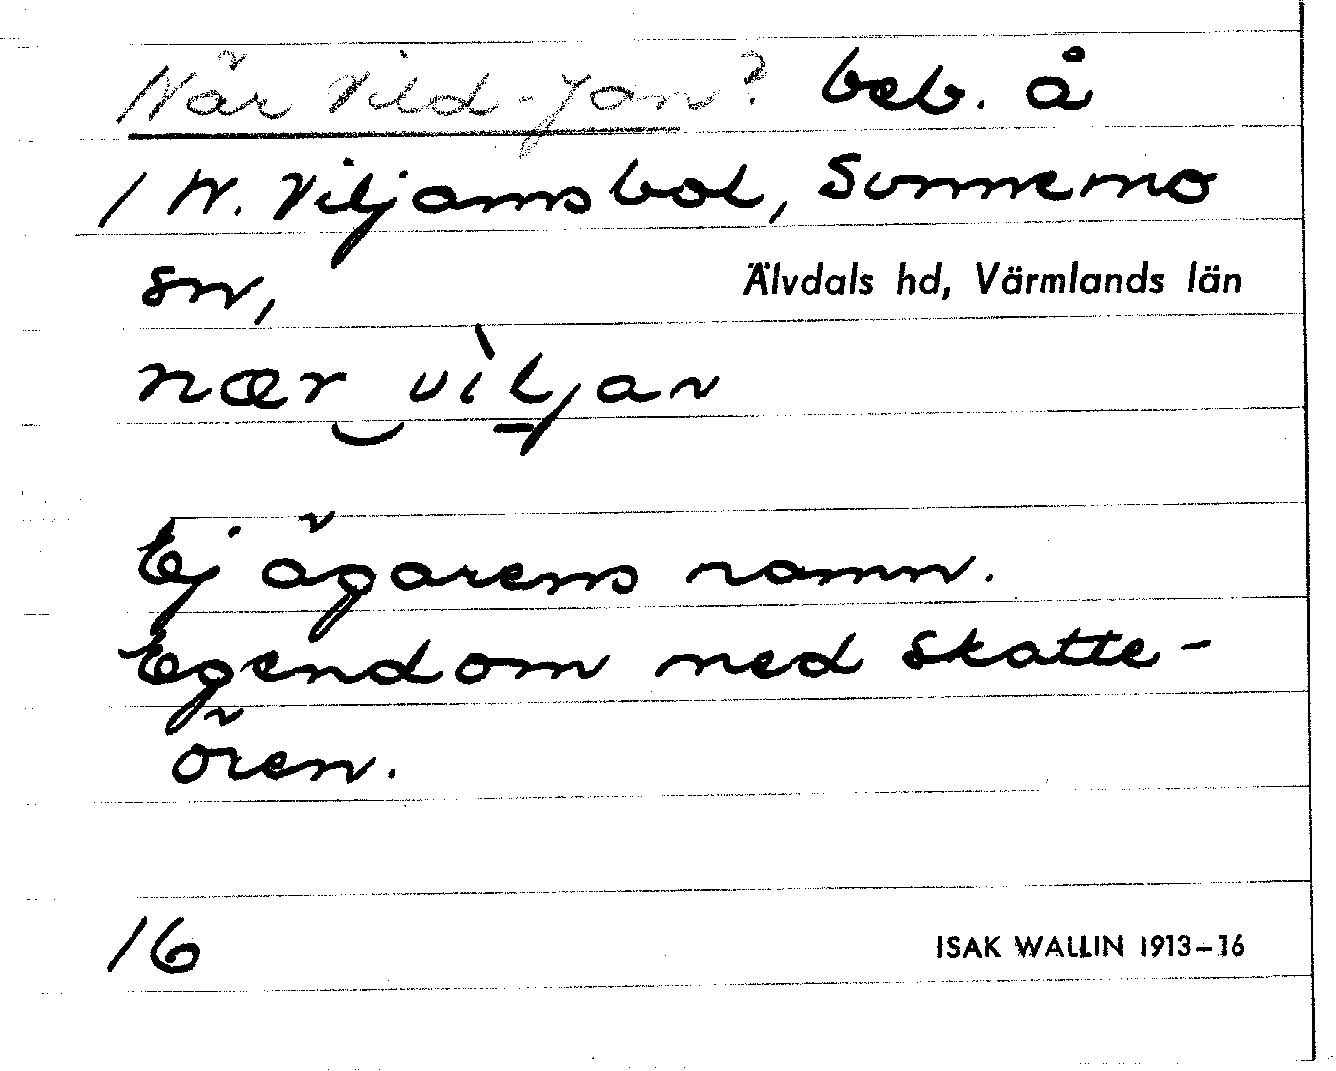 När Vild-Jan? beb. å
1 N. Viljamsbol, Sunnemo
sn, Älvdals hd, Värmlands län
nær‿vìljan
Ej ägarens namn.
Egendom med skatte-
ören.
16 ISAK WALLIN 1913–16